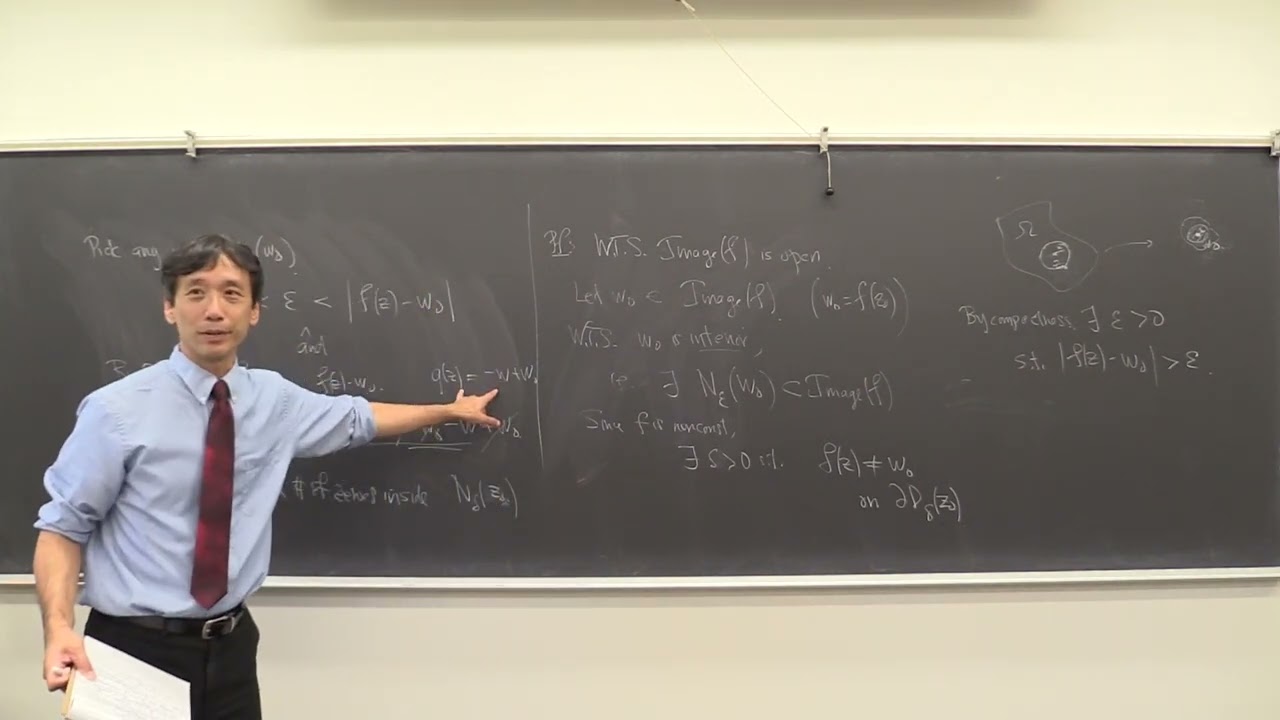 Pick any (w₀).
< ε < |f(z) - w₀|
and
f(z) - w₀. g(z) = -w + w₀
- w + w₀
# of zeros inside N_δ(z₀)
Pf: W.T.S. Image(f) is open.
Let w₀ ∈ Image(f). (w₀ = f(z₀))
W.T.S. w₀ is interior,
i.e. ∃ N_ε(w₀) ⊂ Image(f)
Since f is nonconst,
∃ δ>0 s.t. f(z) ≠ w₀
on ∂D_δ(z₀)
Ω
w₀
By compactness, ∃ ε>0
s.t. |f(z) - w₀| > ε.